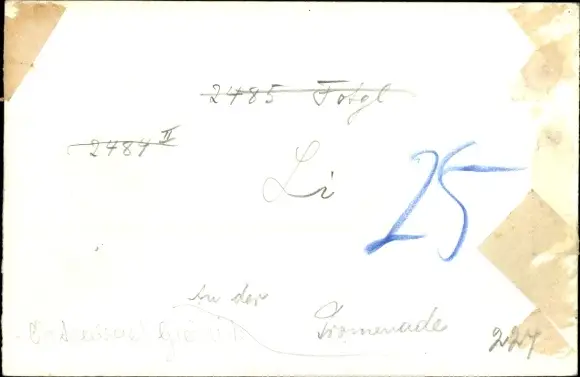 2485
2484 II
Li
25
An der
Promenade
227